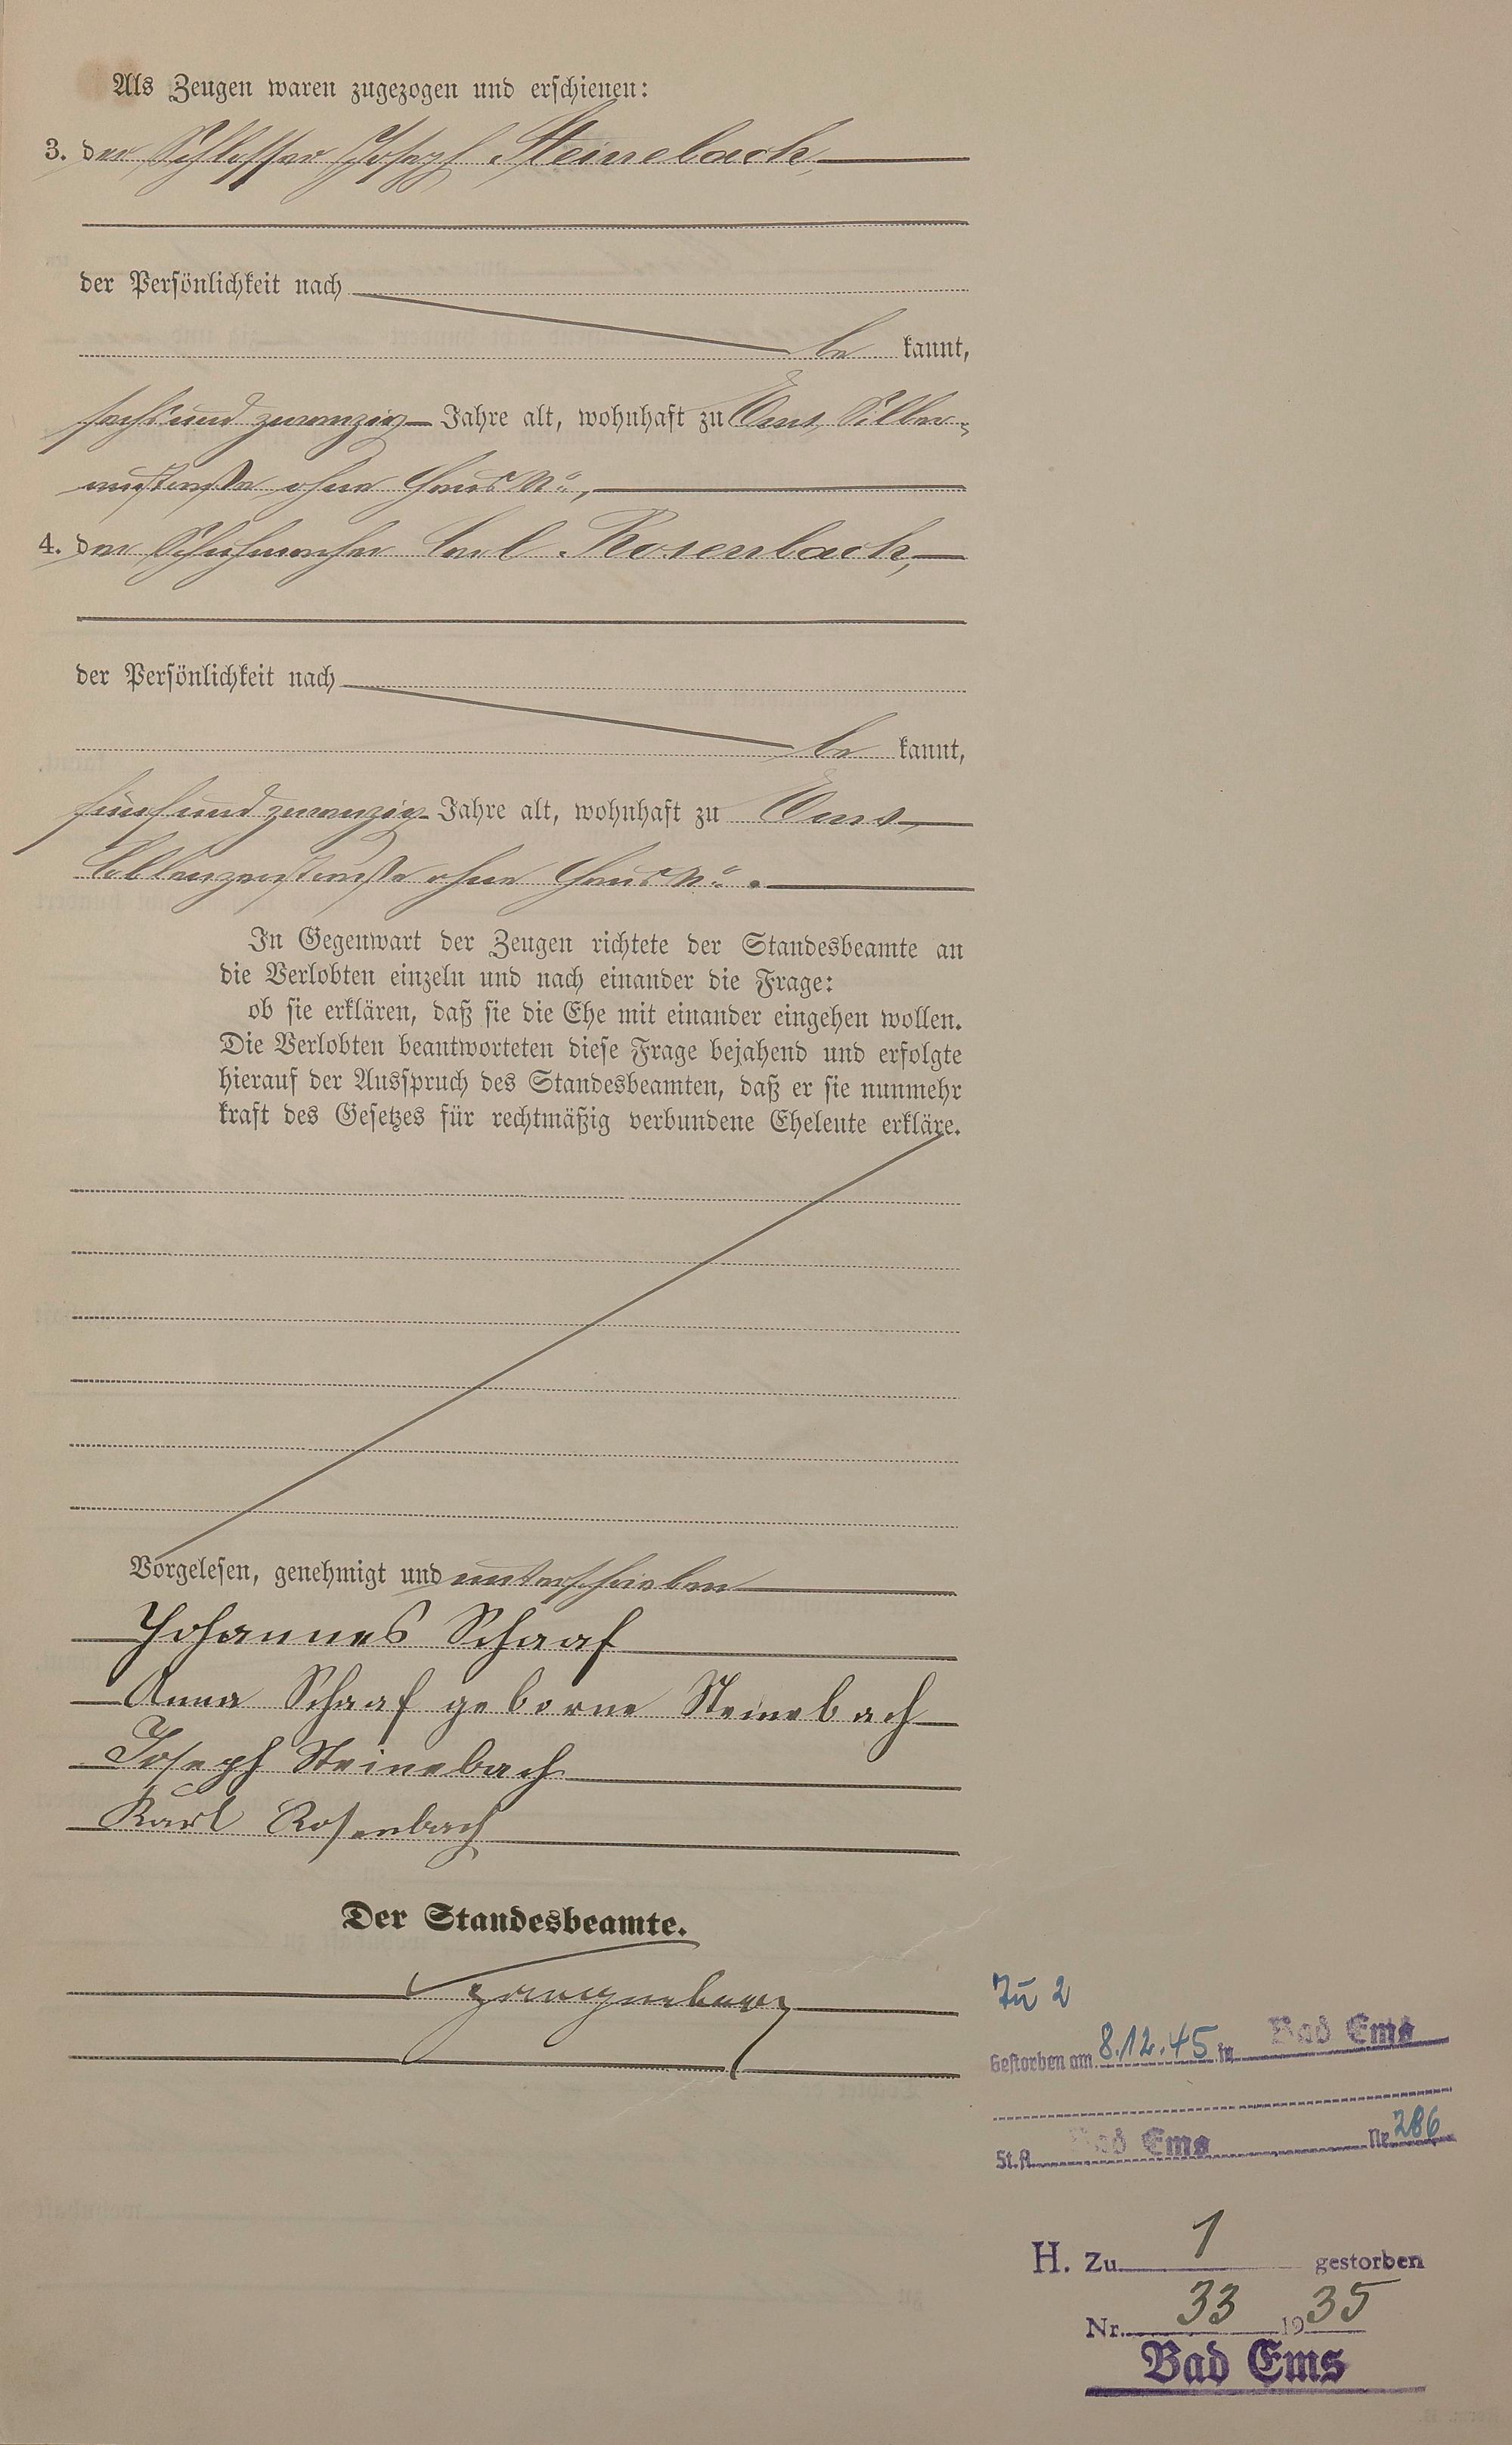 Als Zeugen waren zugezogen und erschienen:
3. der Schlosser Joseph Steinebach,
der Persönlichkeit nach
be kannt,
sechsundzwanzig Jahre alt, wohnhaft zu Ems, Silber-
austraße ohne Haus No.,
4. der Schuhmacher Carl Rosenbach,
der Persönlichkeit nach
be kannt,
fünfundzwanzig Jahre alt, wohnhaft zu Ems,
Coblenzerstraße ohne Haus No.
In Gegenwart der Zeugen richtete der Standesbeamte an
die Verlobten einzeln und nach einander die Frage:
ob sie erklären, daß sie die Ehe mit einander eingehen wollen.
Die Verlobten beantworteten diese Frage bejahend und erfolgte
hierauf der Ausspruch des Standesbeamten, daß er sie nunmehr
kraft des Gesetzes für rechtmäßig verbundene Eheleute erkläre.
Vorgelesen, genehmigt und unterschrieben
Johannes Schaaf
Anna Schaaf geborne Steinebach
Joseph Steinebach
Karl Rosenbach
Der Standesbeamte.
Spangenberg
Zu 2
Gestorben am 8.12.45 in Bad Ems
St.A. Bad Ems Nr. 286
H. Zu 1 gestorben
Nr. 33 1935
Bad Ems